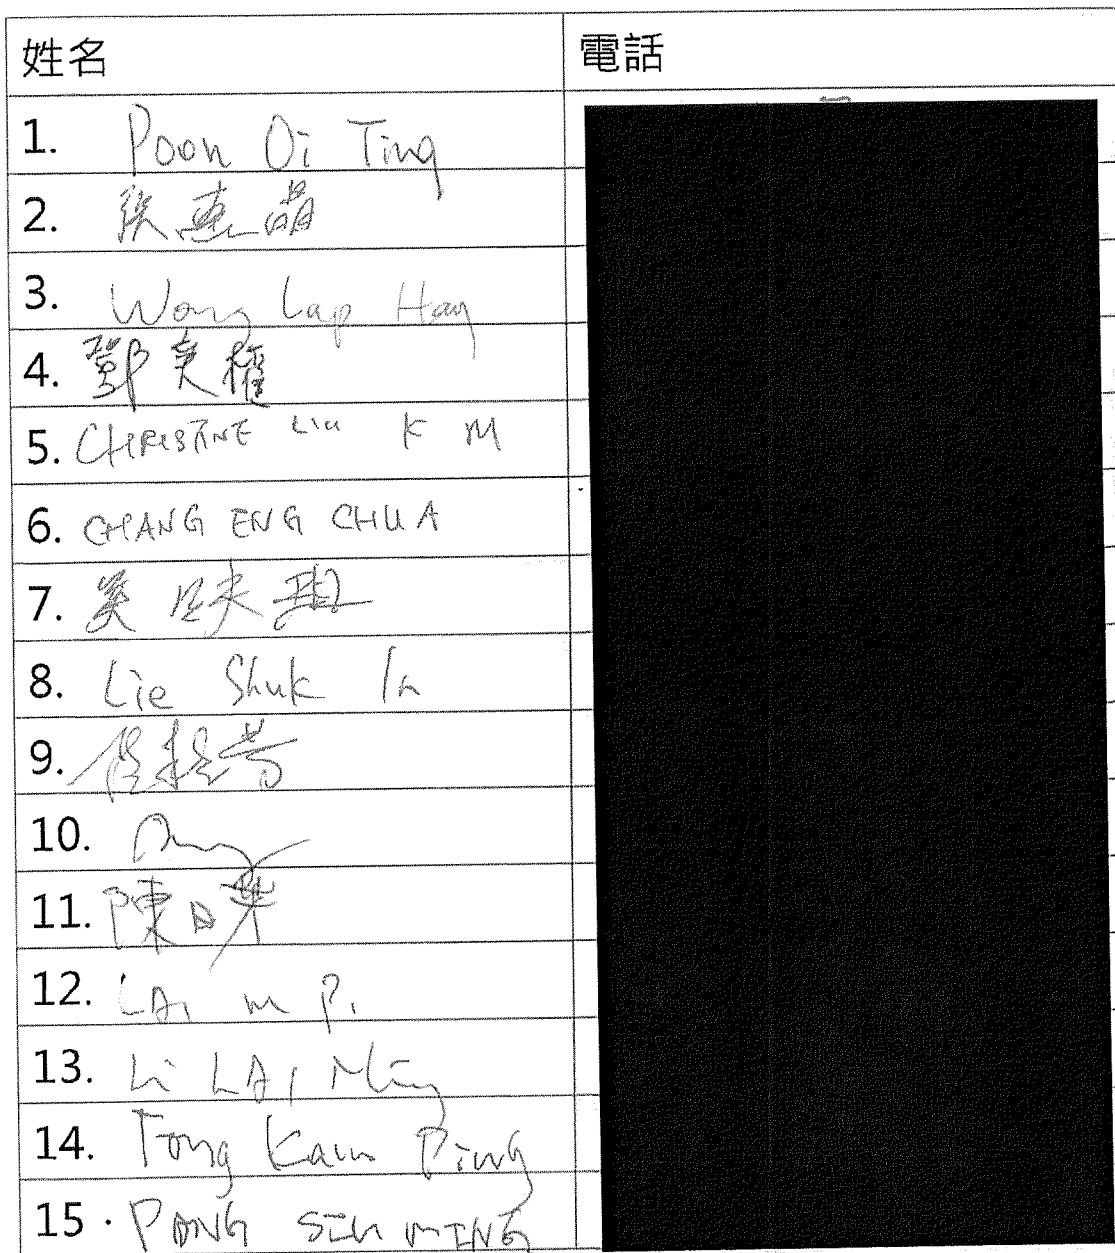 姓名 電話
1. Poon Oi Ting
2.
3. Wong Lap Hay
4. 鄧美權
5. CHRISTINE Liu K M
6. CHANG ENG CHUA
7.
8. Lie Shuk In
9.
10.
11. 陳
12. LAI M P.
13. Li LAI Ming
14. Tong Kam Ping
15. PANG SIU MING